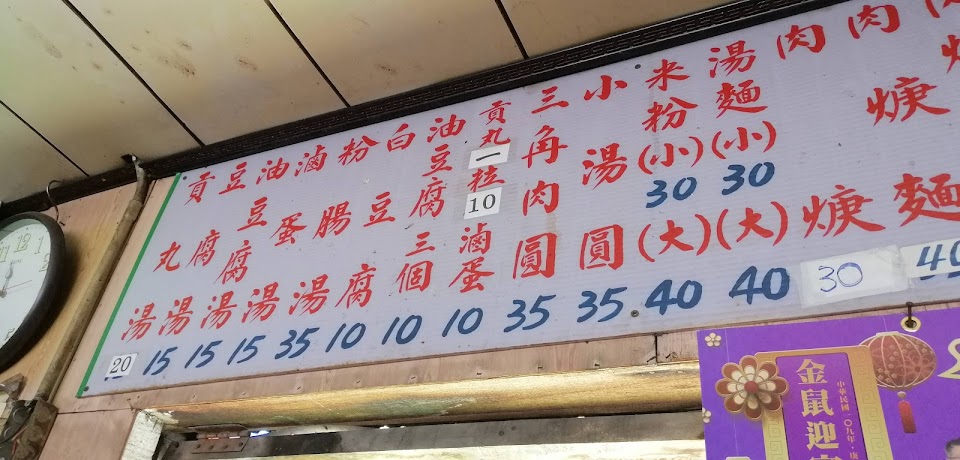 肉焿麵 40
肉焿 30
湯麵(小)30(大)40
米粉(小)30(大)40
小湯圓 35
三角肉圓 35
貢丸一粒10
滷蛋 10
油豆腐三個 10
白豆腐 10
粉腸湯 35
滷蛋湯 15
油豆腐湯 15
豆腐湯 15
貢丸湯 20
金鼠迎
中華民國一〇九年